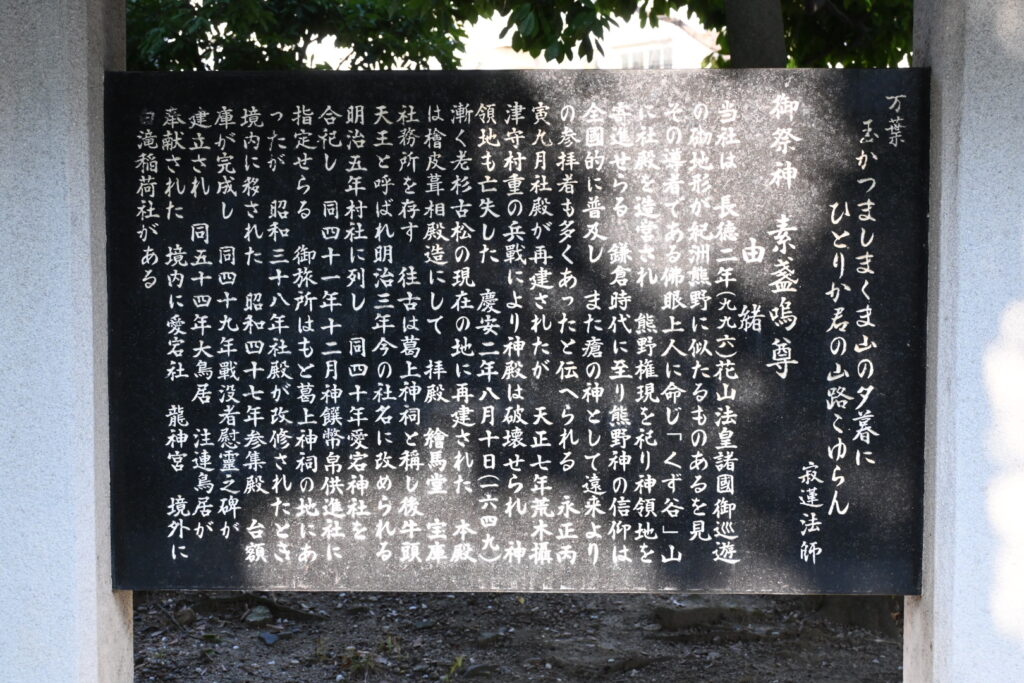 万葉
玉かつましまくま山の夕暮に
ひとりか君の山路こゆらん
寂蓮法師
御祭神 素盞嗚尊
由緒
当社は 長徳二年(九九六)花山法皇諸國御巡遊
の砌地形が紀洲熊野に似たるものあるを見
その導者である佛眼上人に命じ「くず谷」山
に社殿を造営され 熊野権現を祀り神領地を
寄進せらる 鎌倉時代に至り熊野神の信仰は
全國的に普及し また瘡の神として遠来より
の参拝者も多くあったと伝へられる 永正丙
寅九月社殿が再建されたが 天正七年荒木攝
津守村重の兵戰により神殿は破壊せられ 神
領地も亡失した 慶安二年八月十日(一六四九)
漸く老杉古松の現在の地に再建された 本殿
は檜皮葺相殿造にして 拝殿 繪馬堂 宝庫
社務所を存す 往古は葛上神祠と稱し後牛頭
天王と呼ばれ明治三年今の社名に改められる
明治五年村社に列し 同四十年愛宕神社を
合祀し 同四十一年十二月神饌幣帛供進社に
指定せらる 御旅所はもと葛上神祠の地にあ
ったが 昭和三十八年社殿が改修されたとき
境内に移された 昭和四十七年参集殿 台額
庫が完成し 同四十九年戰没者慰霊之碑が
建立され 同五十四年大鳥居 注連鳥居が
奉献された 境内に愛宕社 龍神宮 境外に
白滝稲荷社がある